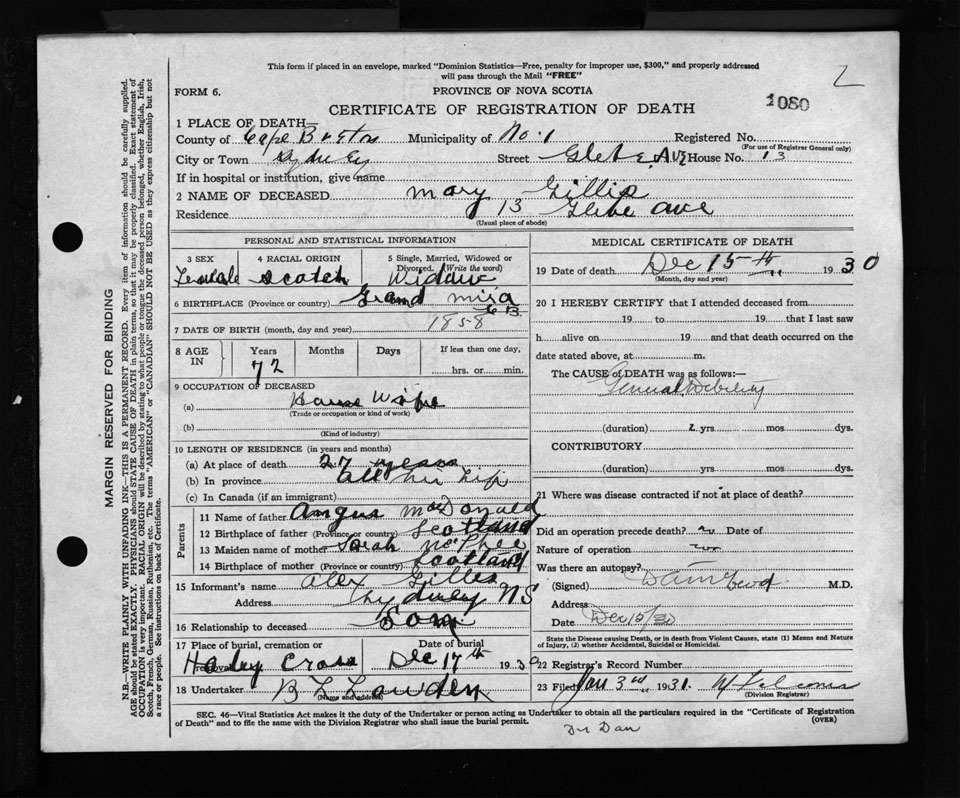 This form if placed in an envelope, marked "Dominion Statistics—Free, penalty for improper use, $300," and properly addressed
will pass through the Mail "FREE"
2
FORM 6. PROVINCE OF NOVA SCOTIA
1080
CERTIFICATE OF REGISTRATION OF DEATH
1 PLACE OF DEATH—
County of Cape Breton Municipality of No. 1 Registered No.
(For use of Registrar General only)
City or Town Sydney Street Glebe Ave House No. 13
If in hospital or institution, give name
2 NAME OF DECEASED Mary Gillis
Residence 13 Glebe Ave
(Usual place of abode)
PERSONAL AND STATISTICAL INFORMATION
3 SEX 4 RACIAL ORIGIN 5 Single, Married, Widowed or
Divorced. (Write the word)
Female Scotch Widow
6 BIRTHPLACE (Province or country) Grand Mira
C B.
7 DATE OF BIRTH (month, day and year) 1858
8 AGE IN Years Months Days If less than one day,
72 hrs. or min.
9 OCCUPATION OF DECEASED
(a) House Wife
(Trade or occupation or kind of work)
(b)
(Kind of industry)
10 LENGTH OF RESIDENCE (in years and months)
(a) At place of death 27 years
(b) In province all her Life
(c) In Canada (if an immigrant)
Parents
11 Name of father Angus MacDonald
12 Birthplace of father (Province or country) Scotland
13 Maiden name of mother Sarah McPhee
14 Birthplace of mother (Province or country) Scotland
15 Informant's name Alex Gillis
Address Sydney NS
16 Relationship to deceased Son
17 Place of burial, cremation or Date of burial
Holey Cross Dec 17th 1930
18 Undertaker B L Lowden
(Name and address)
MEDICAL CERTIFICATE OF DEATH
19 Date of death Dec 15th 1930
(Month, day and year)
20 I HEREBY CERTIFY that I attended deceased from
19 to 19 that I last saw
h alive on 19 and that death occurred on the
date stated above, at m.
The CAUSE of DEATH was as follows:—
General Debility
(duration) 2 yrs. mos dys.
CONTRIBUTORY
(duration) yrs. mos. dys.
21 Where was disease contracted if not at place of death?
Did an operation precede death? no Date of
Nature of operation
Was there an autopsy?
(Signed) M.D.
Address
Date Dec 15/30
State the Disease causing Death, or in death from Violent Causes, state (1) Means and Nature
of Injury, (2) whether Accidental, Suicidal or Homicidal.
22 Registrar's Record Number
23 Filed Jan 3rd 1931.
(Division Registrar)
SEC. 46—Vital Statistics Act makes it the duty of the Undertaker or person acting as Undertaker to obtain all the particulars required in the "Certificate of Registration
of Death" and to file the same with the Division Registrar who shall issue the burial permit. (OVER)
Dr Dan
MARGIN RESERVED FOR BINDING
N.B.—WRITE PLAINLY WITH UNFADING INK—THIS IS A PERMANENT RECORD. Every item of information should be carefully supplied.
AGE should be stated EXACTLY. PHYSICIANS should STATE CAUSE OF DEATH in plain terms, so that it may be properly classified. Exact statement of
OCCUPATION is very important. RACIAL ORIGIN will be described by stating to what people or tongue the deceased person belonged, whether English, Irish,
Scotch, French, German, Russian, Ruthenian, etc. The terms "AMERICAN" or "CANADIAN" SHOULD NOT BE USED as they express citizenship but not
a race or people. See instructions on back of Certificate.